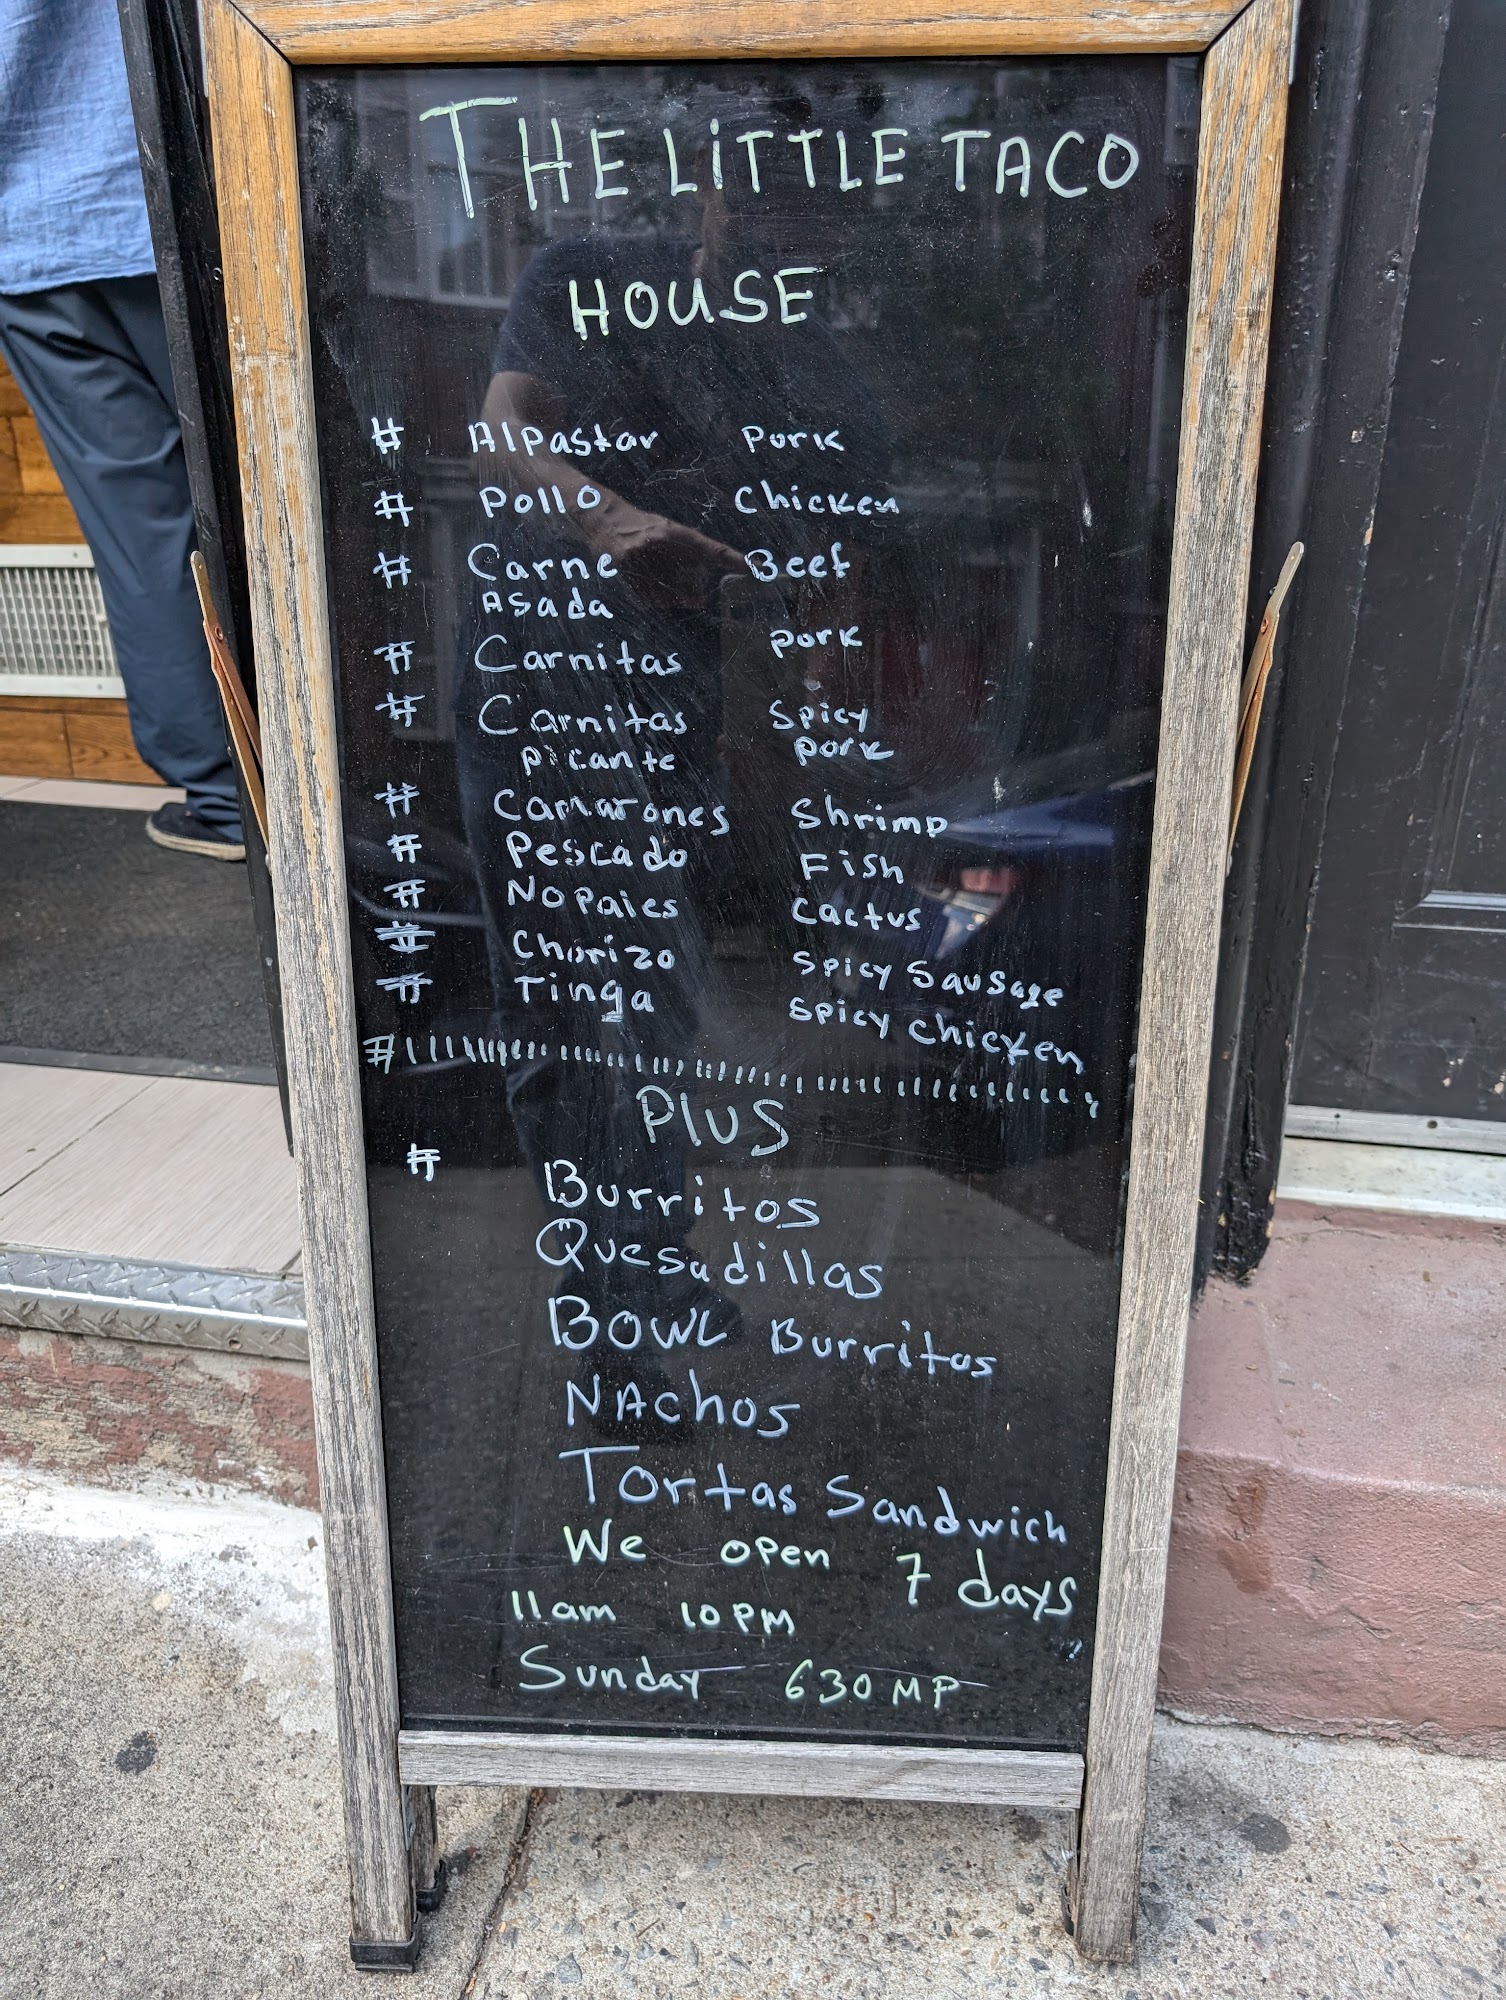 THE LiTTLE TACO
HOUSE
# Alpastor Pork
# Pollo Chicken
# Carne Beef
Asada
# Carnitas pork
# Carnitas Spicy
picante pork
# Camarones Shrimp
# Pescado Fish
# Nopales Cactus
# Chorizo Spicy Sausage
# Tinga Spicy Chicken
#
Plus
# Burritos
Quesadillas
BOWL Burritos
NAchos
Tortas Sandwich
We open 7 days
11am 10PM
Sunday 630 MP